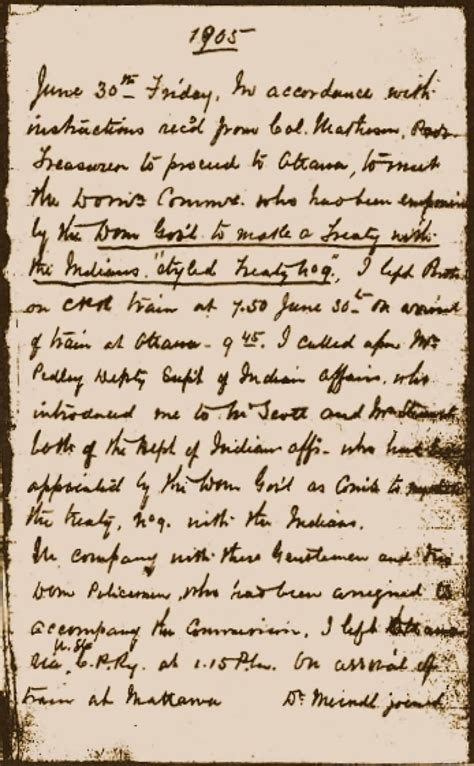 1905
June 30th Friday, In accordance with
instructions rec'd from Col. Matheson, Prov
Treasurer to proceed to Ottawa, to meet
the Dom'n Commrs. who had been empowered
by the Dom Gov't. to make a Treaty with
the Indians. "styled Treaty No 9", I left
on train at 7.50 June 30th On arrival
of train at Ottawa - 9 45. I called upon Mr
Pedley Depty Supt of Indian Affairs. who
introduced me to Mr Scott and Mr Stewart
both of the Dept of Indian affrs - who had been
appointed by the Dom Gov't as Coms to
the treaty, No 9. with the Indians.
In company with these Gentlemen and two
Dom Policemen, who had been assigned to
accompany the Commission, I left Ottawa
via, C.P.Ry. at 1.15 P.m. On arrival of
train at Mattawa Dr Meindl joined